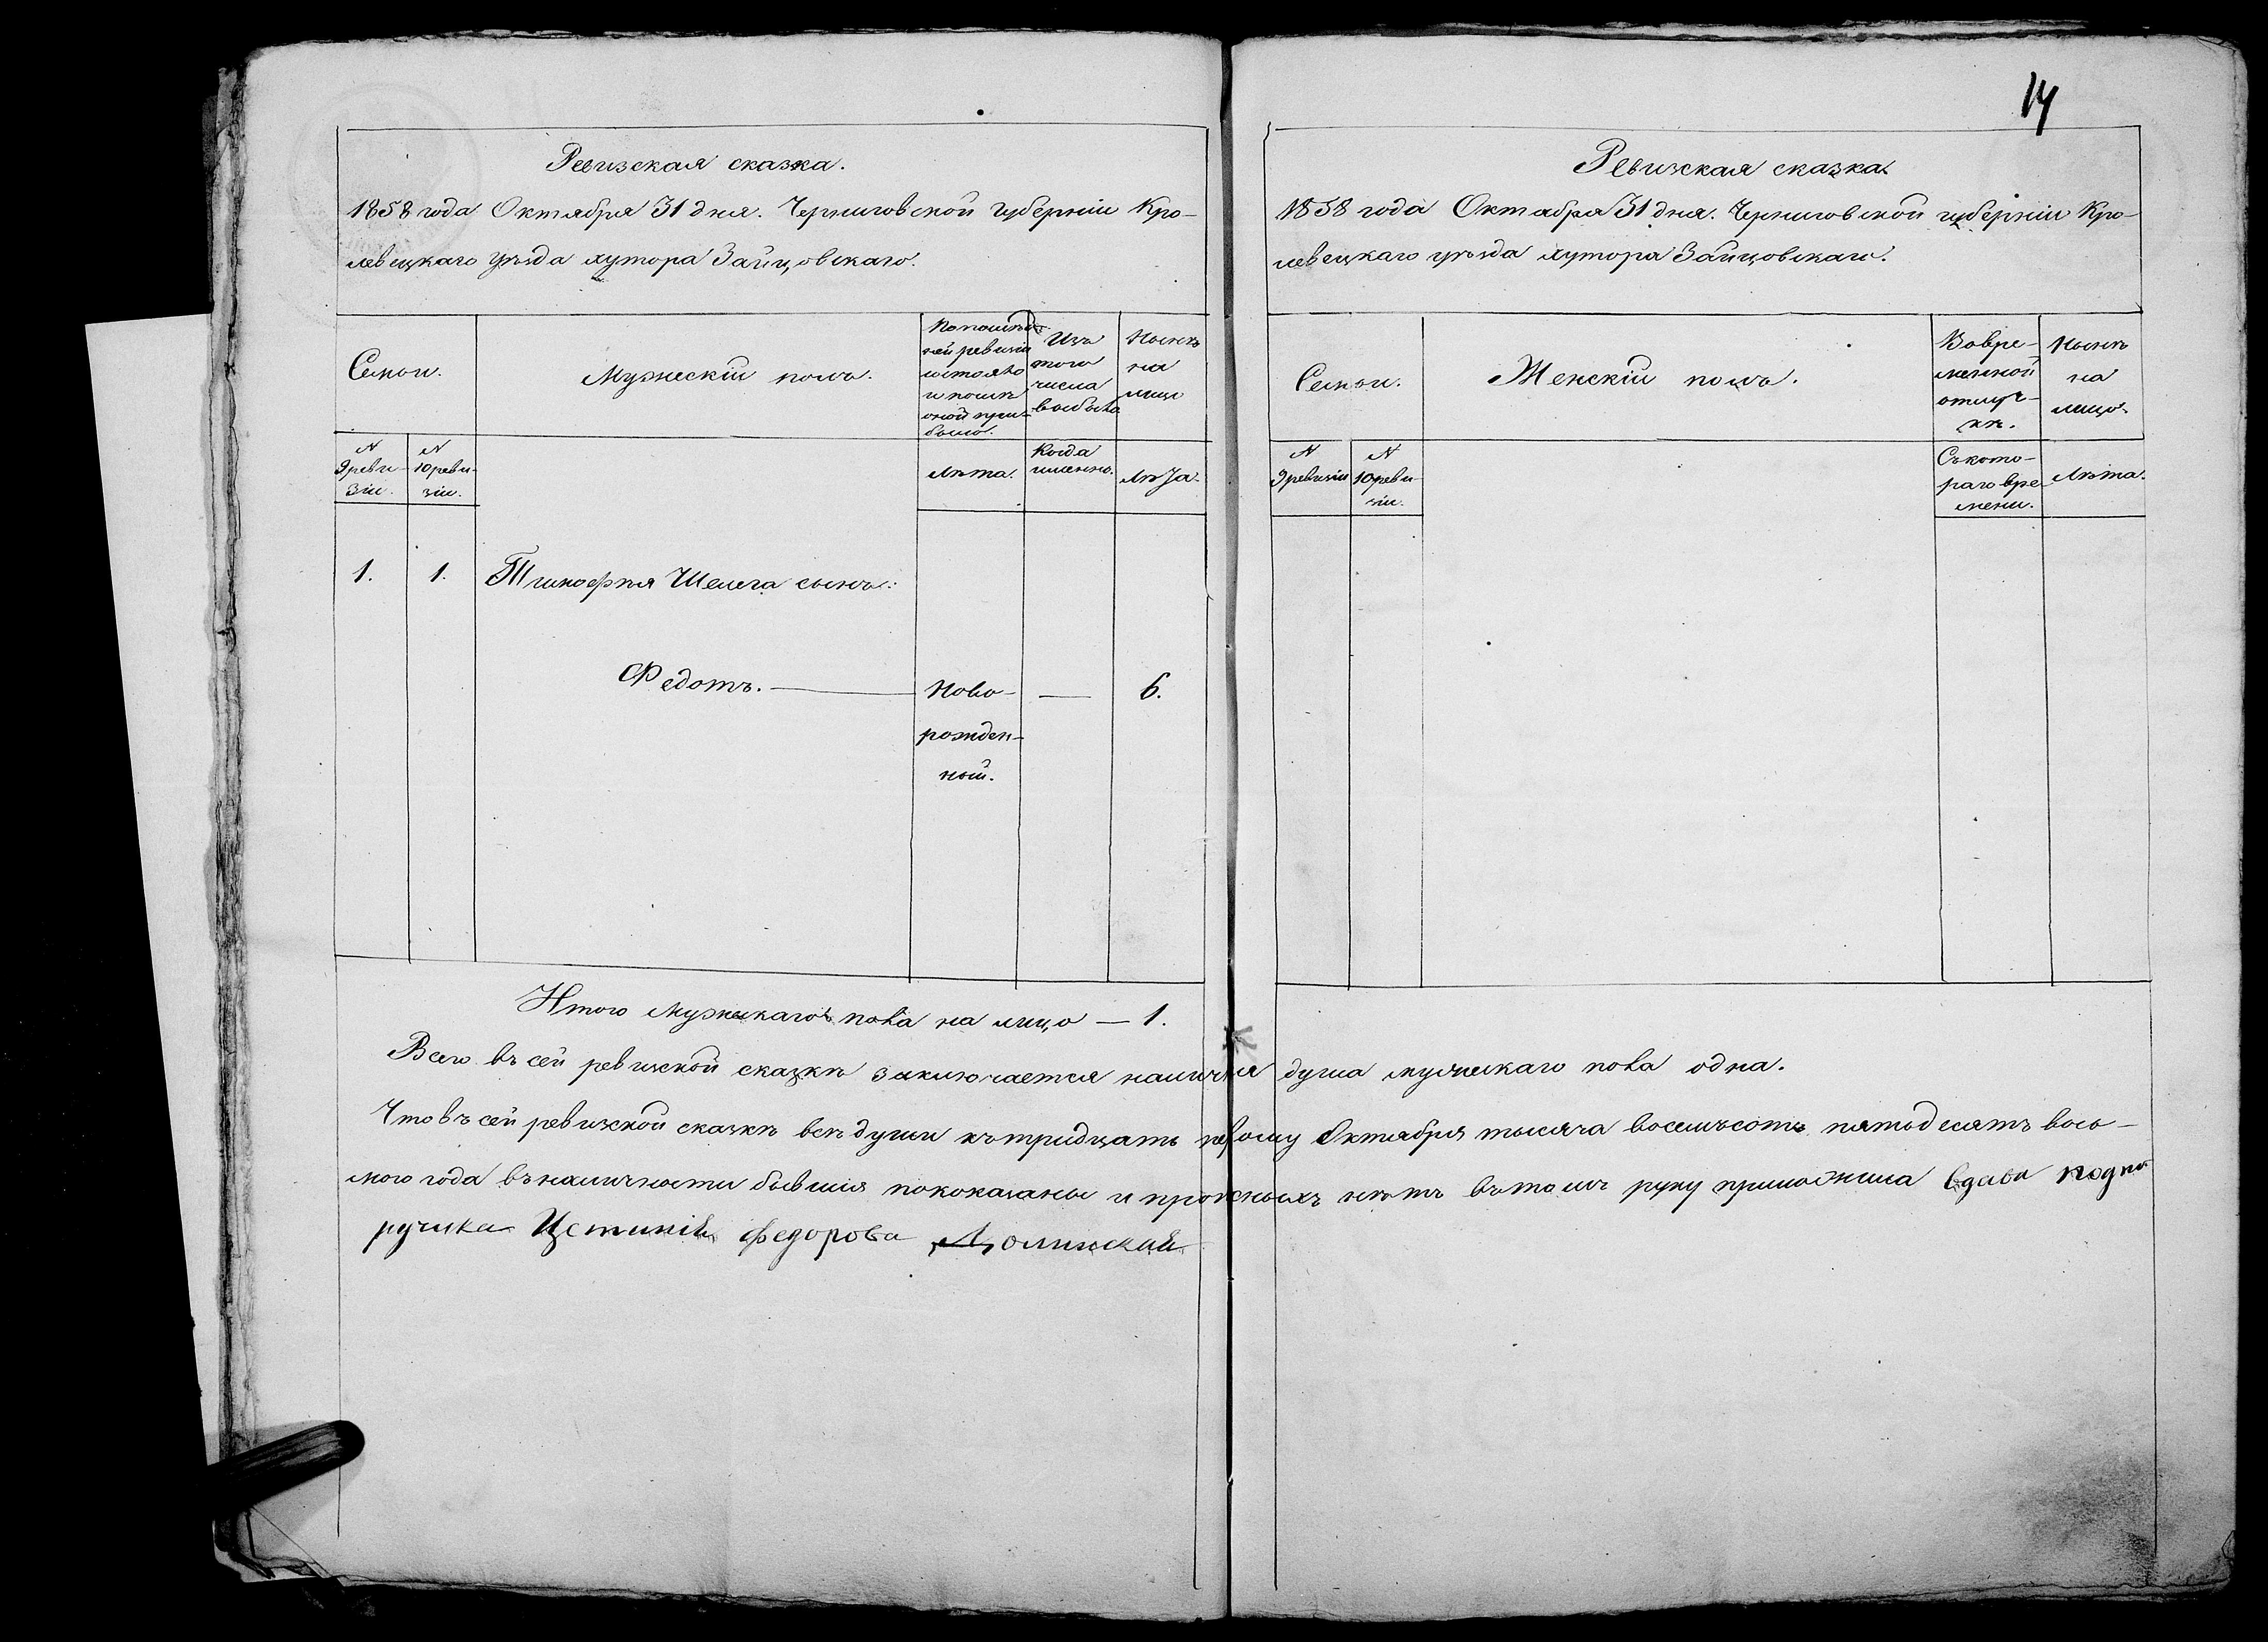 14
Ревизская сказка.
1858 года Октября 31 дня. Черниговской губерніи Кро-
левецкаго уѣзда хутора Зайцовскаго.
Семьи.
Мужескій полъ.
По послѣд-
ней ревизіи
состояло
и послѣ
оной при-
было.
Изъ
того
числа
выбыло
Нынѣ
на
лицо
N
9 реви-
зіи.
N
10 реви-
зіи.
Лѣта.
Когда
именно.
Лѣта.
1.
1.
Тимофѣя Шелега сынъ:
Федотъ. —
Ново-
рожден-
ный.
—
6.
Итого мужескаго пола на лицо — 1.
Ревизская сказка
1858 года Октября 31 дня. Черниговской губерніи Кро-
левецкаго уѣзда хутора Зайцовскаго.
Семьи.
Женскій полъ.
Вовре-
менной
отлуч-
кѣ.
Нынѣ
на
лицо.
N
9 ревизіи
N
10 реви-
зіи.
Съ кото-
раго вре-
мени.
Лѣта.
Всего въ сей ревизской сказкѣ заключается налична душа мужескаго пола одна.
Что въ сей ревизской сказкѣ всѣ души къ тридцать первому Октября тысяча восемьсотъ пятьдесятъ вось-
мого года въ наличности бывшія показаны и прописныхъ нѣтъ въ томъ руку приложила вдова подпо
ручика Федорова Долинская